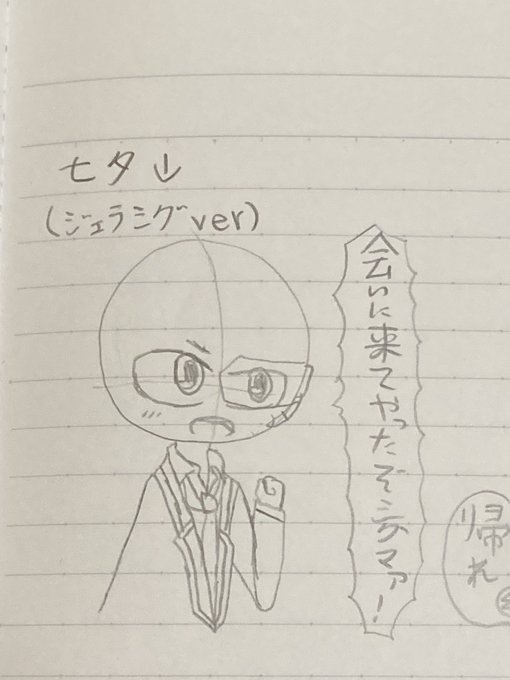 七夕↓
(ジェラシグver)
会いに来てやったぞシグマァ!
帰れ